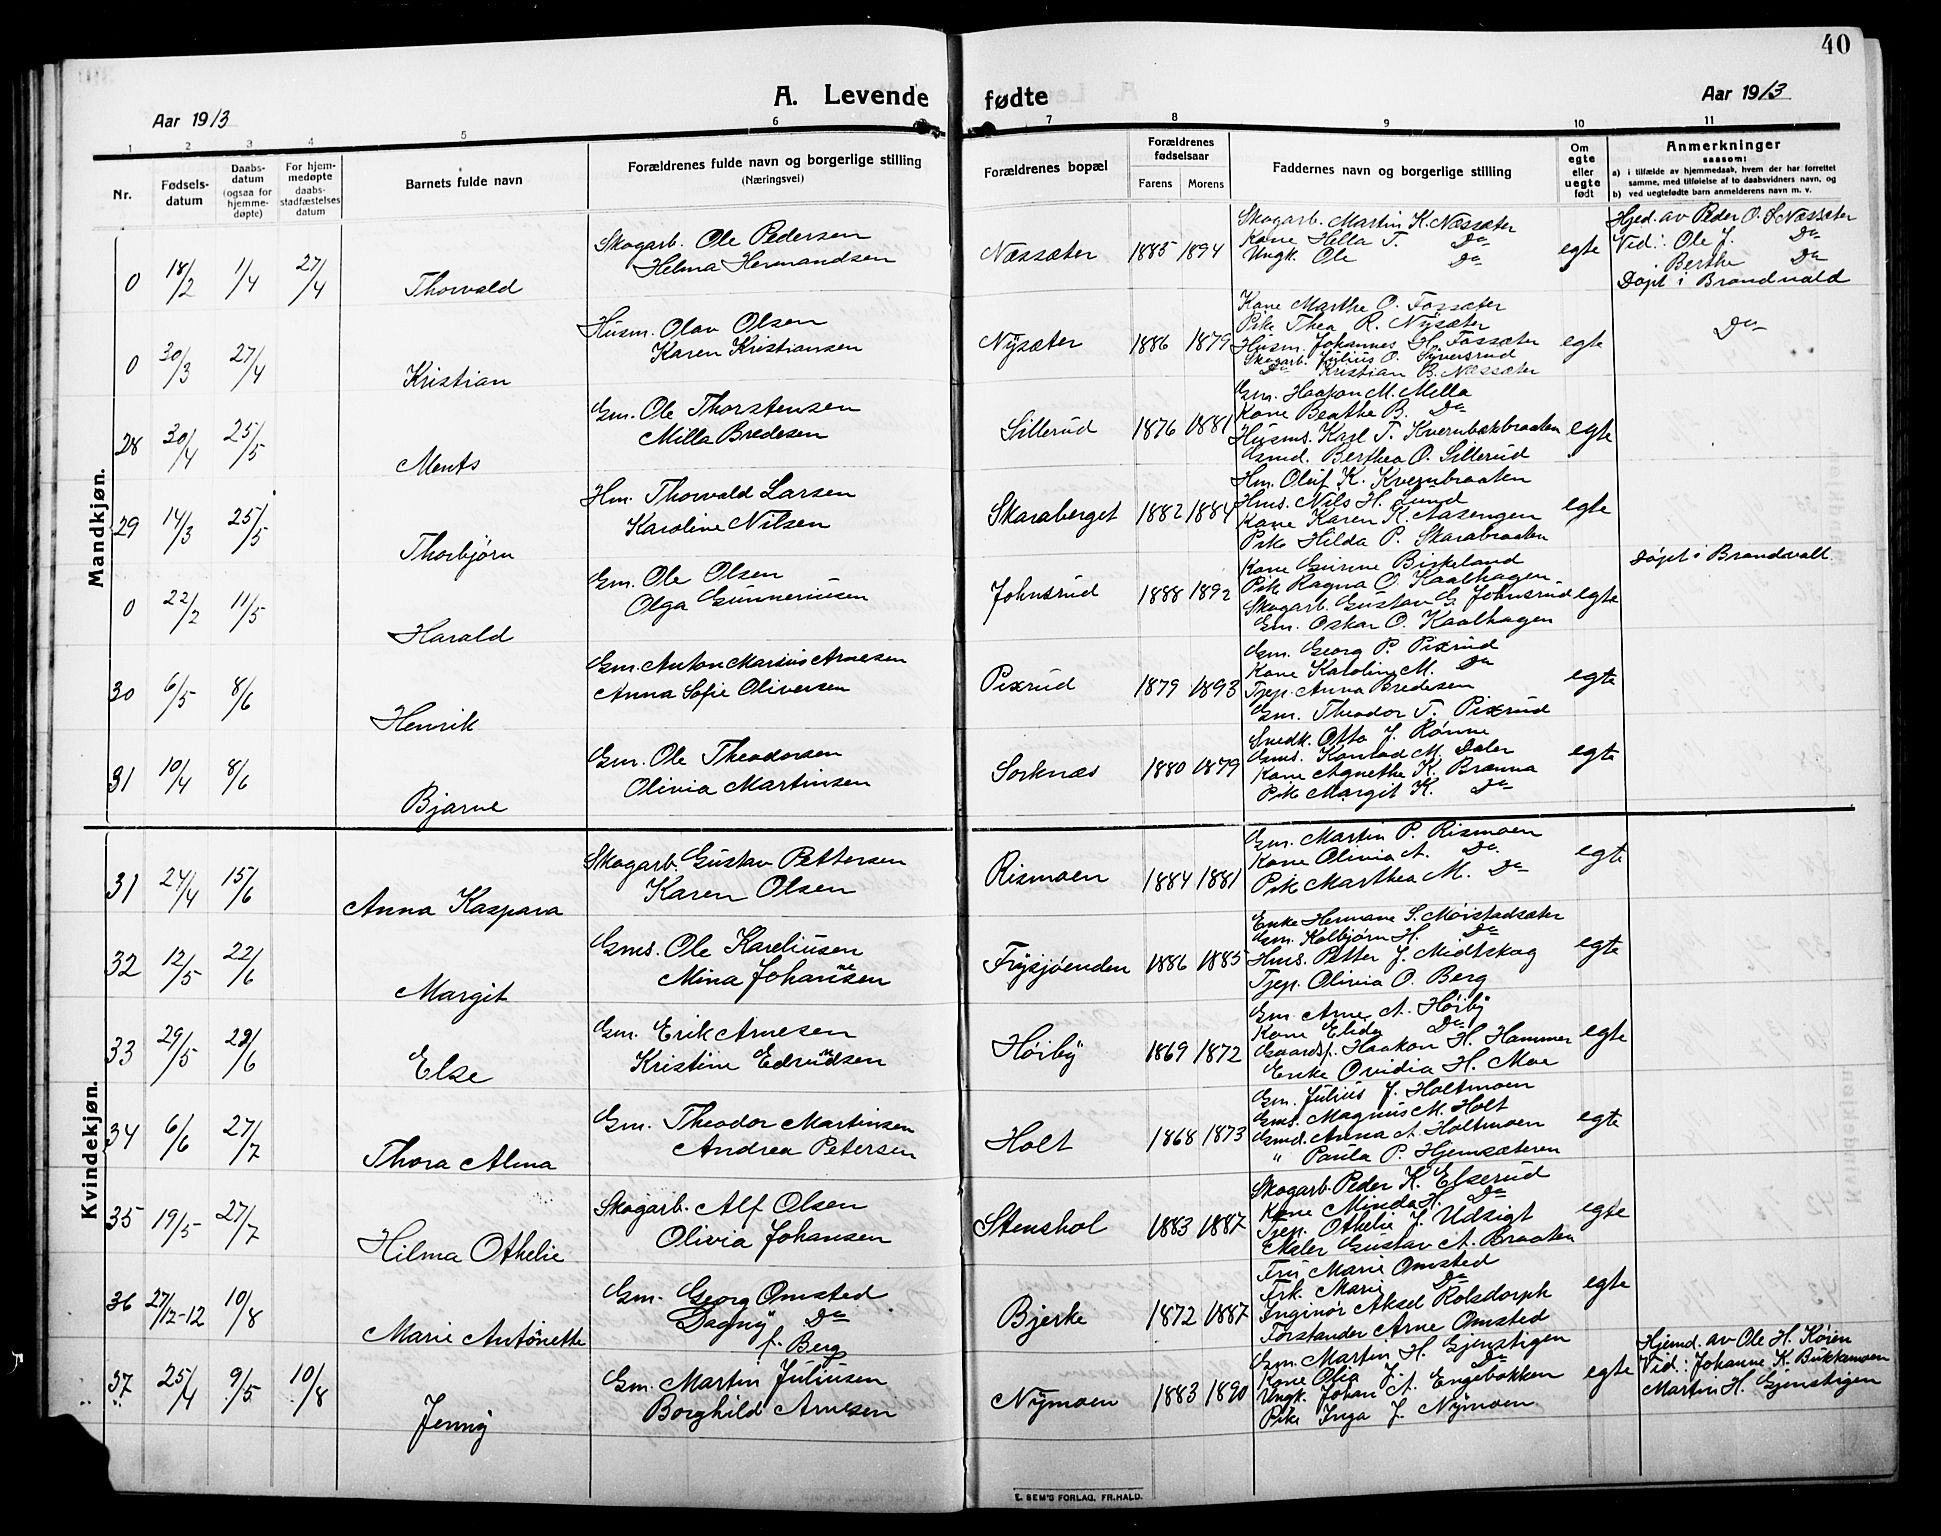 40
A. Levende fødte
Aar 1913
Aar 1913
1 2 3 4 5 6 7 8 9 10 11
Nr.
Fødsels-
datum
Daabs-
datum
(ogsaa for
hjemme-
døpte)
For hjem-
medøpte
daabs-
stadfæstelses
datum
Barnets fulde navn
Forældrenes fulde navn og borgerlige stilling
(Næringsvei)
Forældrenes bopæl
Forældrenes
fødselsaar
Farens
Morens
Faddernes navn og borgerlige stilling
Om
egte
eller
uegte
født
Anmerkninger
saasom:
a) i tilfælde av hjemmedaab, hvem der har forrettet
samme, med tilføielse af to daabsvidners navn, og
b) ved uegtefødte barn anmelderens navn m. v.
Mandkjøn.
0 18/2 1/4 27/4 Thorvald
Skogarb. Ole Pedersen
Helma Hermandsen
Næssæter 1885 1894
Skogarb. Martin K. Næssæter
Kone Hella T. Do
Ungk. Ole Do
egte
Hjed. av Peder O. Næssæter
Vid: Ole J. Do
Berthe Do
Døpt i Brandvald
0 30/3 27/4 Kristian
Husm. Olav Olsen
Karen Kristiansen
Nysæter 1886 1879
Kone Marthe O. Fossæter
Pike Thea R. Nysæter
Husm. Johannes H. Fossæter
Skogarb. Julius O. Syversrud
Do Kristian B. Næssæter
egte
Do
28 30/4 25/5 Ments
Gm. Ole Thorstensen
Milla Bredesen
Sillerud 1876 1881
Gm. Haakon M. Mella
Kone Beathe B. Do
Husms. Karl T. Kvernbækbraaten
Gmd. Berthea O. Sillerud
egte
29 14/3 25/5 Thorbjørn
Hm. Thorvald Larsen
Karoline Nilsen
Skaraberget 1882 1884
Hm. Oluf K. Kvernbraaten
Hms. Nils H. Lund
Kone Karen K. Aasengen
Pike Hilda P. Skarabraaten
egte
0 22/2 11/5 Harald
Gm. Ole Olsen
Olga Gunneriusen
Johnsrud 1888 1892
Kone Gurine Birkeland
Pik Ragna O. Kaalhagen
Skogarb. Gustav G. Johnsrud
Gm. Oskar O. Kaalhagen
egte
Døpt i Brandvall
30 6/5 8/6 Henrik
Gm. Anton Marius Arnesen
Anna Sofie Oliversen
Pixrud 1879 1893
Gm. Georg P. Pixrud
Kone Karoline M. Do
Tjep. Anna Bredesen
Gm. Theodor T. Pixrud
egte
31 10/4 8/6 Bjarne
Gm. Ole Theodorsen
Olivia Martinsen
Sorknæs 1880 1879
Snedk. Otto J. Rønne
Gms. Konrad M. Daler
Kone Agnethe K. Brænna
Pik Margit K. Do
egte
Kvindekjøn.
31 24/4 15/6 Anna Kaspara
Skogarb. Gustav Pettersen
Karen Olsen
Rismoen 1884 1881
Gm. Martin P. Rismoen
Kone Olivia A. Do
Pik Marthea M. Do
egte
32 12/5 22/6 Margit
Gms. Ole Kareliusen
Mina Johannesen
Frysjøenden 1886 1885
Enke Hermane S. Moistadsæter
Gm. Kolbjørn H. Do
Hms. Petter J. Midtskog
Tjep. Olivia O. Berg
egte
33 29/5 29/6 Else
Gm. Erik Arnesen
Kristine Edvardsen
Høiby 1869 1872
Gm Arne A. Høiby
Kone Elida Do
Gaardsf. Haakon H. Hammer
Enke Ovidia H. Moe
egte
34 6/6 27/7 Thora Alma
Gm. Theodor Martinsen
Andrea Petersen
Holt 1868 1873
Gm. Julius J. Holtmoen
Gms. Magnus M. Holt
Gmd. Anna A. Holtmoen
" Paula P. Hjemsæteren
egte
35 19/5 27/7 Hilma Othelie
Skogarb. Alf Olsen
Olivia Johansen
Stenshol 1883 1887
Skogarb. Peder K. Elserud
Kone Minda H. Do
Tjep. Othelie J. Udsigt
Maler Gustav A. Braaten
egte
36 27/12-12 10/8 Marie Antonette
Gm. Georg Omsted
Dagny Do
f. Berg
Bjerke 1872 1887
Fru Marie Omsted
Frk. Marie Do
Inginør Aksel Rolsdorph
Forstander Arne Omsted
egte
37 25/4 9/5 10/8 Jenny
Gm. Martin Juliusen
Borghild Arnesen
Nymoen 1883 1890
Gm. Martin H. Gjenstigen
Kone Olia J. Do
Ungk. Johan A. Engebakken
Pike Inga J. Nymoen
egte
Hjemd. av Ole H. Køien
Vid: Johanne K. Bukkemoen
Martin H. Gjenstigen
E. SEM'S FORLAG, FR.HALD.